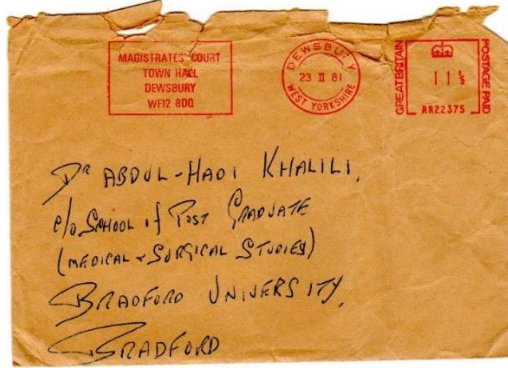 MAGISTRATES' COURT
TOWN HALL
DEWSBURY
WF12 8DQ
DEWSBURY
23 II 81
WEST YORKSHIRE
GREAT BRITAIN
11½
POSTAGE PAID
RR22375
Dr ABDUL-HADI KHALILI,
c/o SCHOOL of POST GRADUATE
(MEDICAL & SURGICAL STUDIES)
BRADFORD UNIVERSITY,
BRADFORD